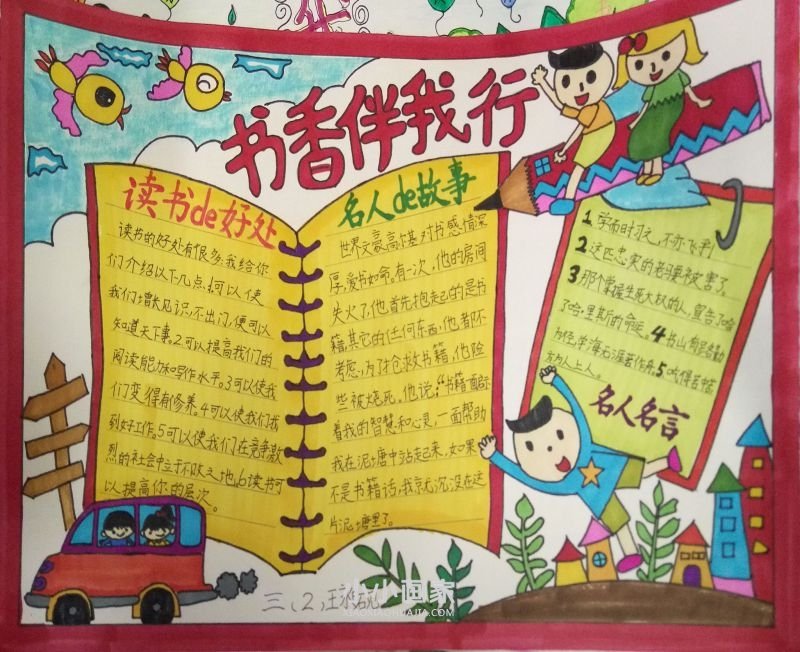 书香伴我行
读书de好处
读书的好处有很多.我给你
们介绍以下几点.1.可以使
我们增长见识,不出门,便可以
知道天下事.2.可以提高我们的
阅读能力和写作水平.3.可以使我
们变得有修养.4.可以使我们找
到好工作.5.可以使我们在竞争激
烈的社会中立于不败之地.6.读书可
以提高你的层次。
名人de故事
世界文豪高尔基对书感情深
厚,爱书如命。有一次,他的房间
失火了,他首先抱起的是书
籍,其它的任何东西,他都不
考虑,为了抢救书籍,他险
些被烧死。他说:“书籍一面启示
着我的智慧和心灵,一面帮助
我在泥塘中站起来,如果
不是书籍话,我就沉没在这
片泥塘里了。
1 学而时习之,不亦飞乎
2 这匹忠实的老骥被害了.
3 那个掌握生死大权的人,宣告了哈
了哈·里斯的命运。4 书山有路勤
为径,学海无涯苦作舟.5 吃得苦中苦
方为人上人。
名人名言
三、2,王
小画家